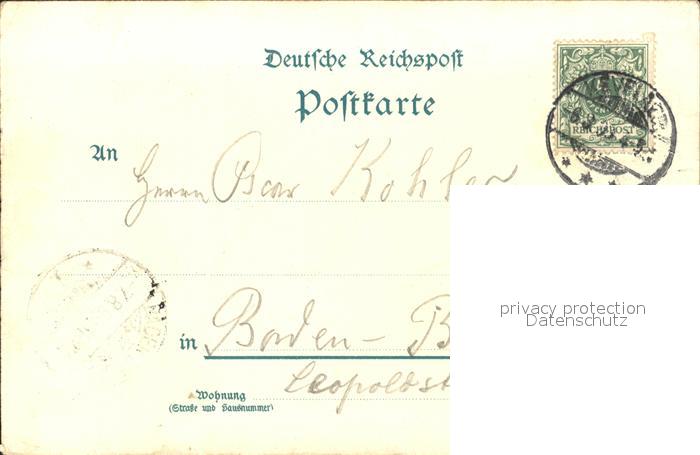 Deutsche Reichspost
Postkarte
REICHSPOST
An
Herrn Oscar Kohler
in Baden-B
Leopoldst
Wohnung
(Straße und Hausnummer)
privacy protection
Datenschutz